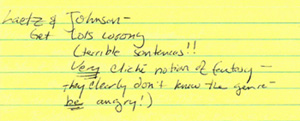 Laetz & Johnson—
Get lots wrong
(terrible sentences!!
Very cliché notion of fantasy—
they clearly don't know the genre—
be angry!)